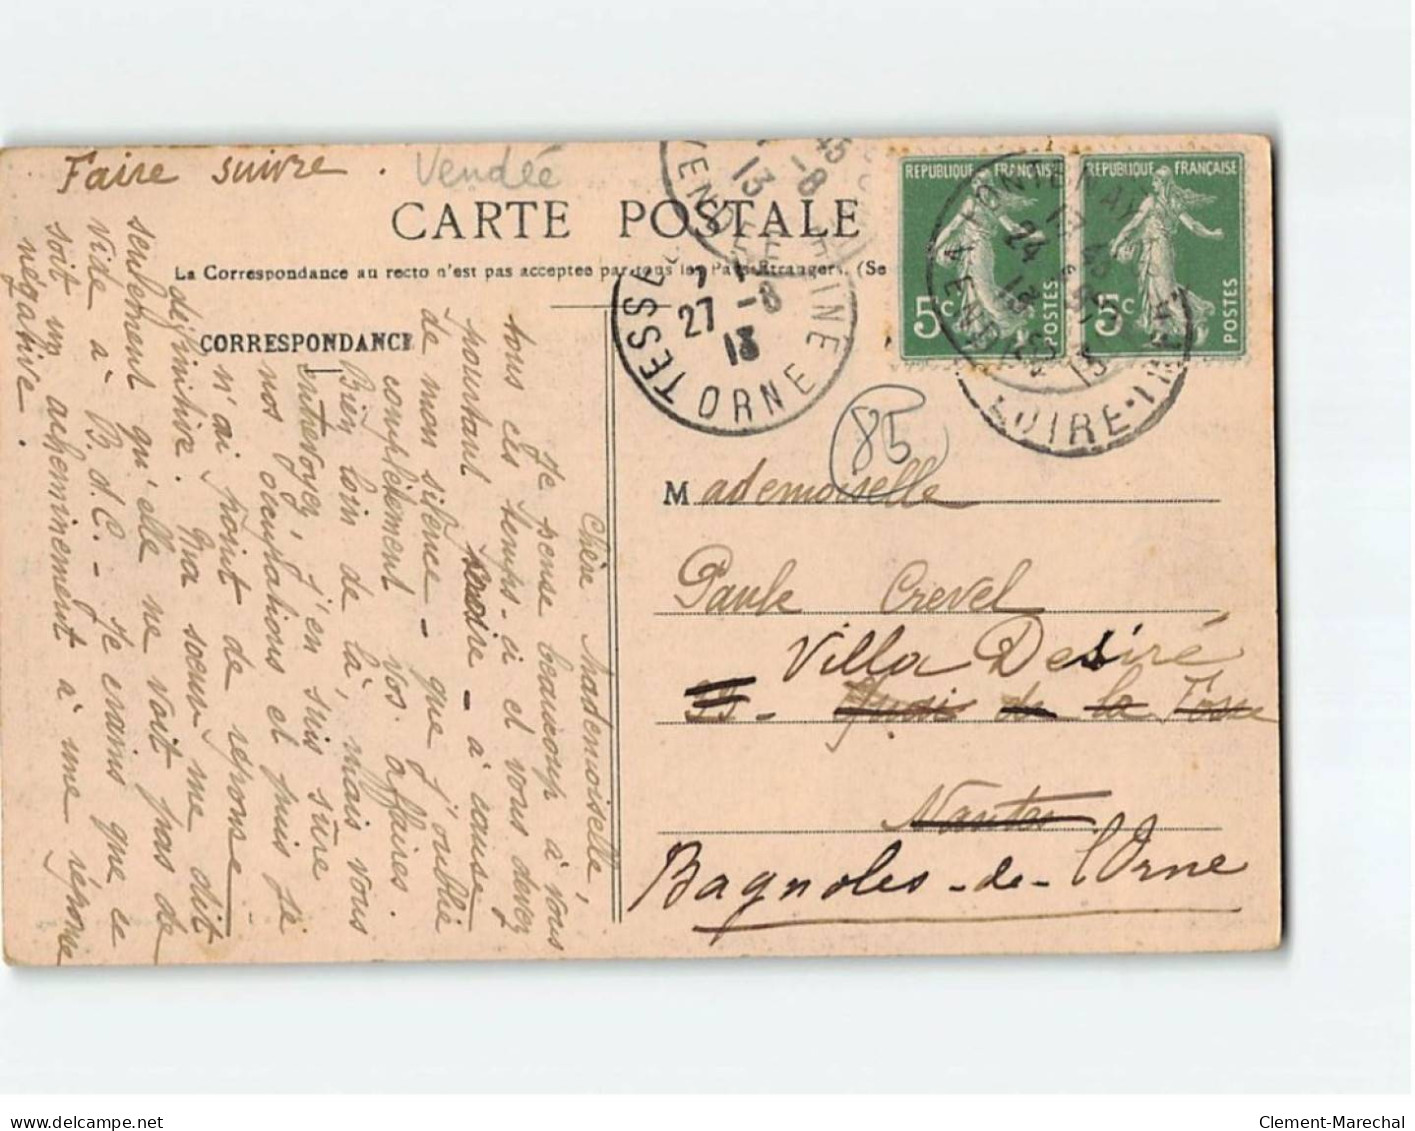 Faire suivre.
Vendée
CARTE POSTALE
La Correspondance au recto n'est pas acceptée par tous les Pays Etrangers. (Se
CORRESPONDANCE
REPUBLIQUE FRANÇAISE
5c POSTES
REPUBLIQUE FRANÇAISE
5c POSTES
27 -8
13
ORNE
VENDEE
LOIRE-INF
85
Mademoiselle
Paule Crevel
Villa Desiré
Quai de la Fosse
Nantes
Bagnoles-de-l'Orne
Chère Mademoiselle,
Je pense beaucoup à vous
tous ces temps-ci et vous devez
pourtant croire - à cause
de mon silence - que j'oublie
complètement vos affaires.
Bien loin de là, mais vous
entrevoyez, j'en suis sûre
nos occupations et puis je
n'ai point de réponse
définitive. Ma soeur me dit
seulement qu'elle ne voit pas de
vide à B.d.C. - Je crains que ce
soit un acheminement à une réponse
négative.
delcampe.net
Clement-Marechal